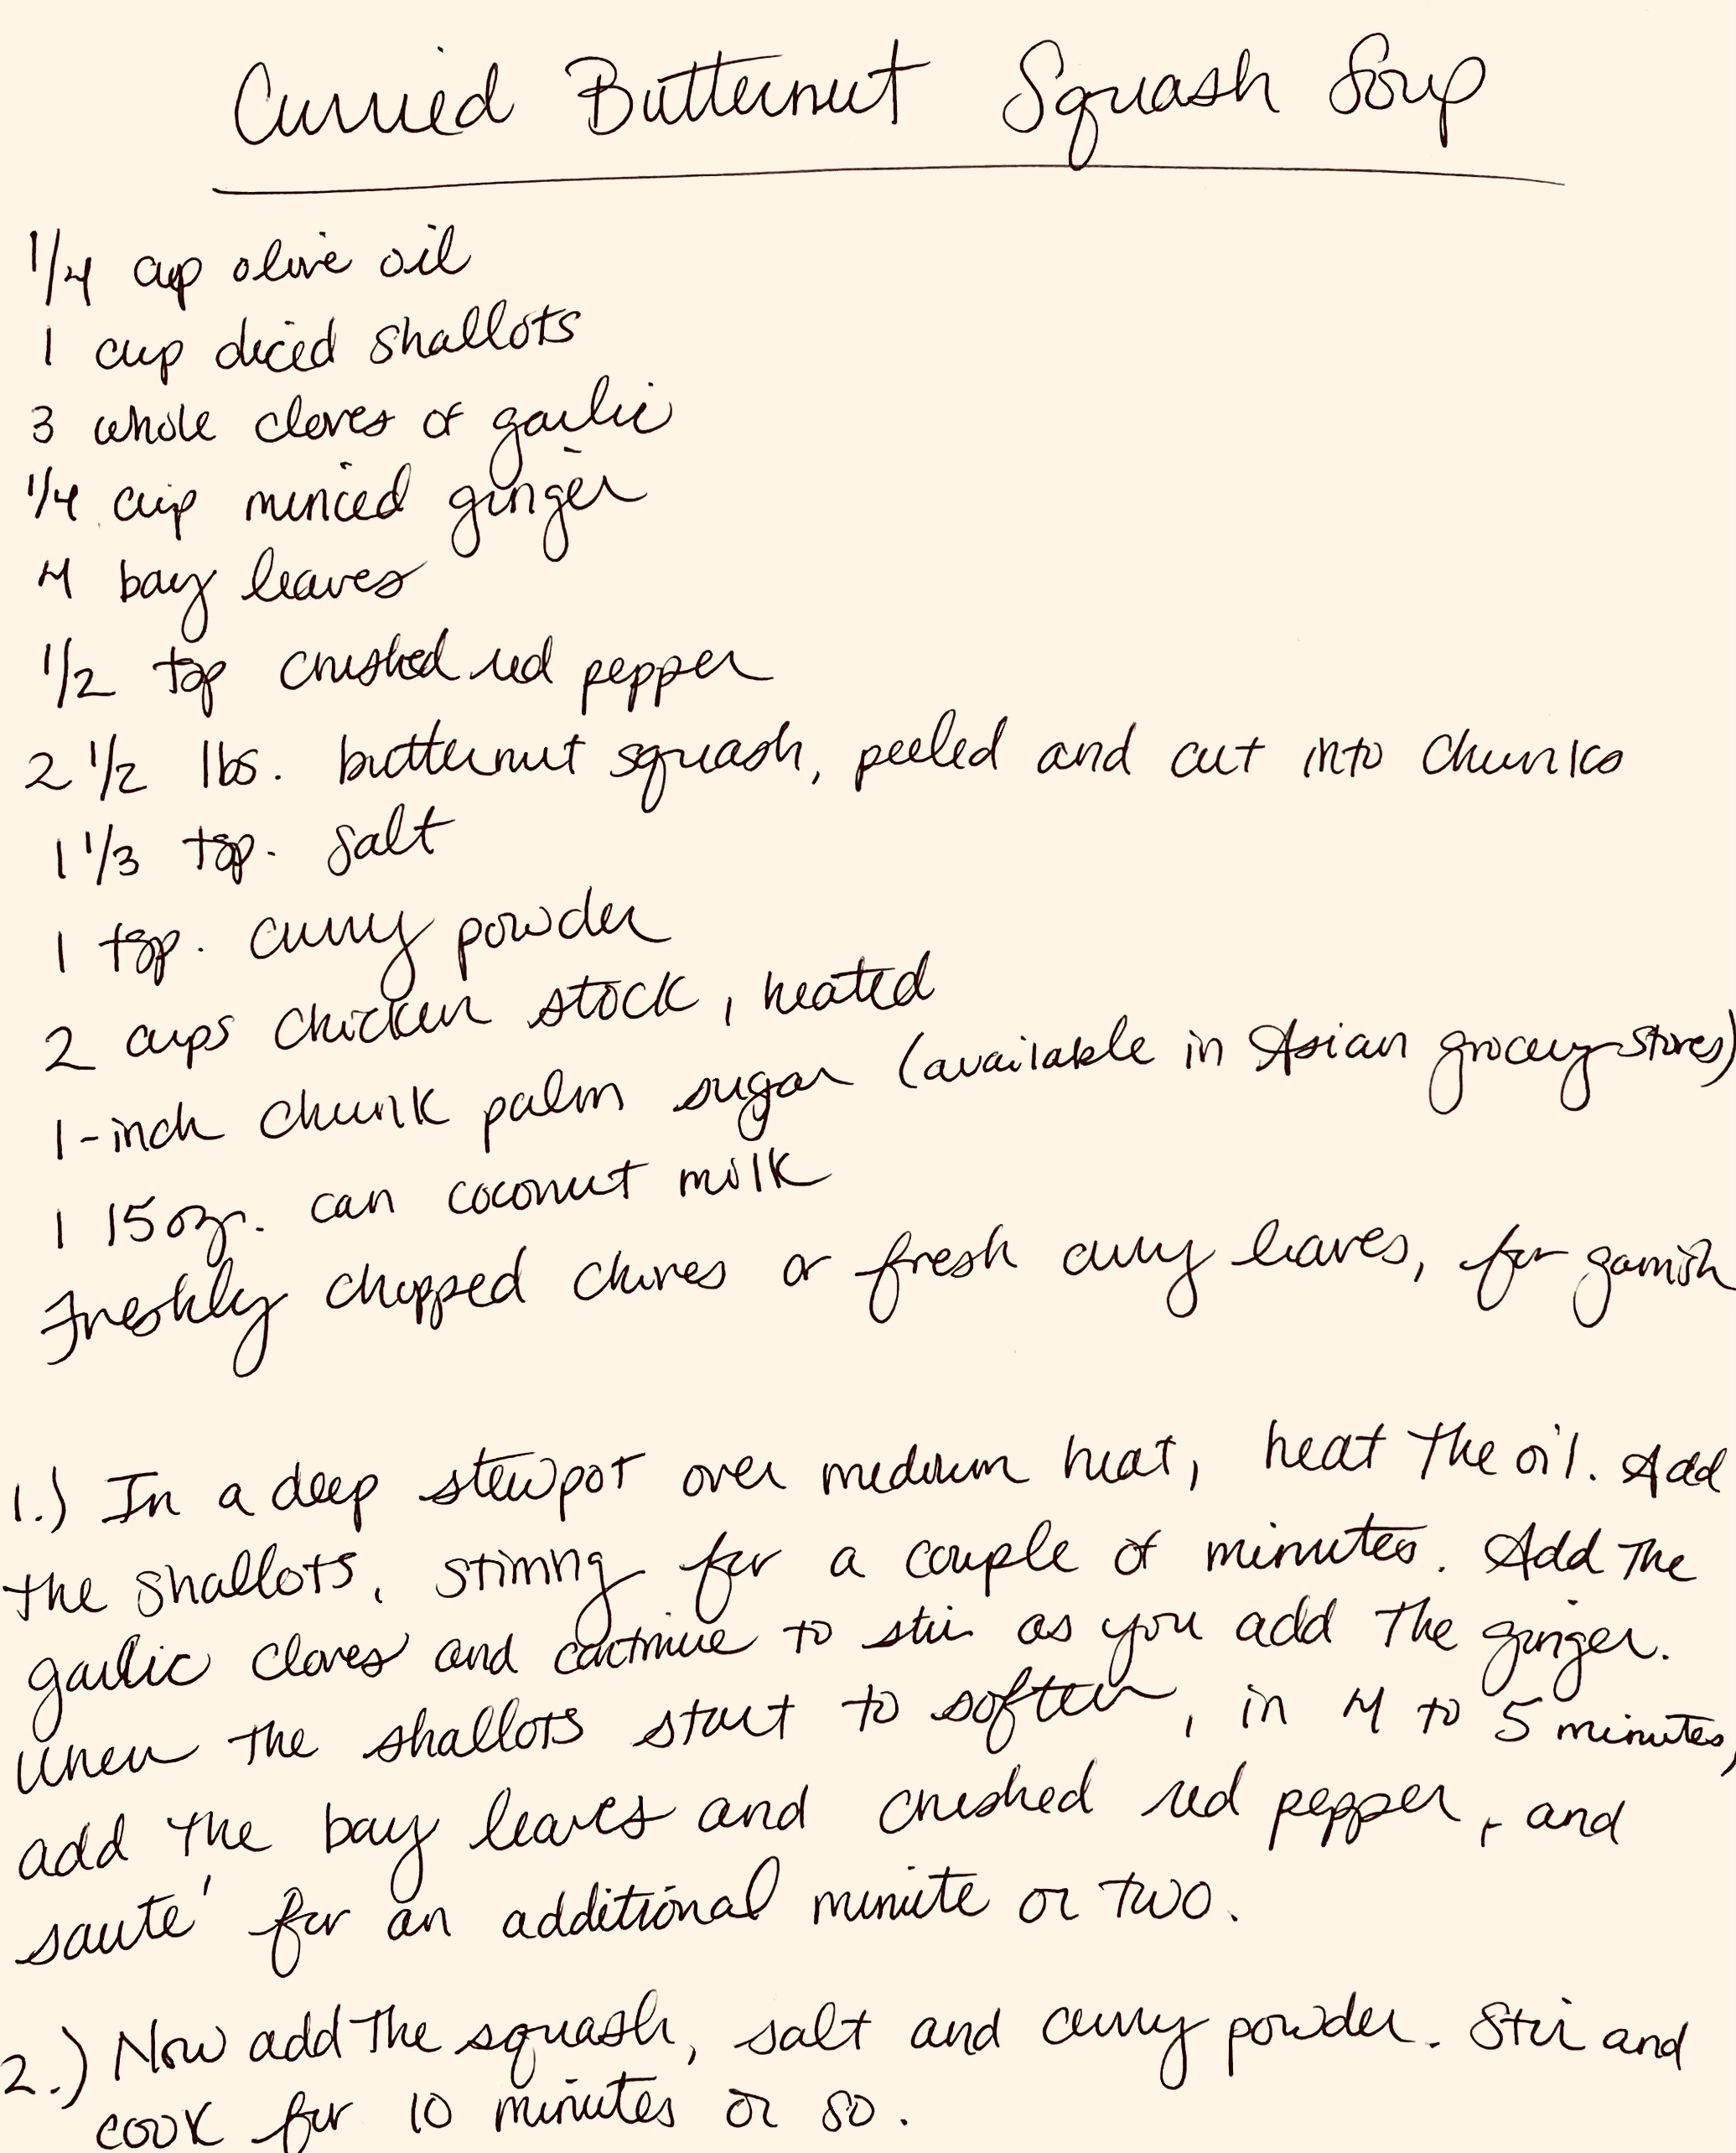 Curried Butternut Squash Soup
1/4 cup olive oil
1 cup diced shallots
3 whole cloves of garlic
1/4 cup minced ginger
4 bay leaves
1/2 tsp crushed red pepper
2 1/2 lbs. butternut squash, peeled and cut into chunks
1 1/3 tsp. salt
1 tsp. curry powder
2 cups chicken stock, heated
1-inch chunk palm sugar (available in Asian grocery stores)
1 15 oz. can coconut milk
Freshly chopped chives or fresh curry leaves, for garnish
1.) In a deep stewpot over medium heat, heat the oil. Add
the shallots, stirring for a couple of minutes. Add the
garlic cloves and continue to stir as you add the ginger.
When the shallots start to soften, in 4 to 5 minutes,
add the bay leaves and crushed red pepper, and
sauté for an additional minute or two.
2.) Now add the squash, salt and curry powder. Stir and
cook for 10 minutes or so.